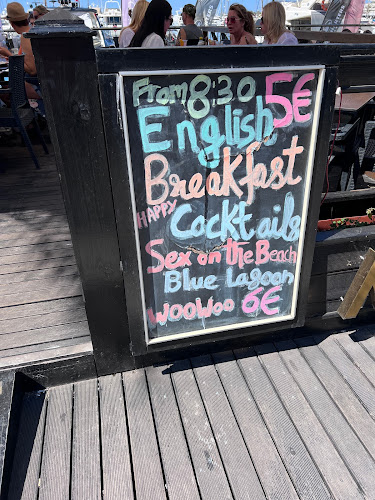 From 8:30 5€
English
Breakfast
HAPPY
Cocktails
Sex on the Beach
Blue Lagoon
WooWoo 6€